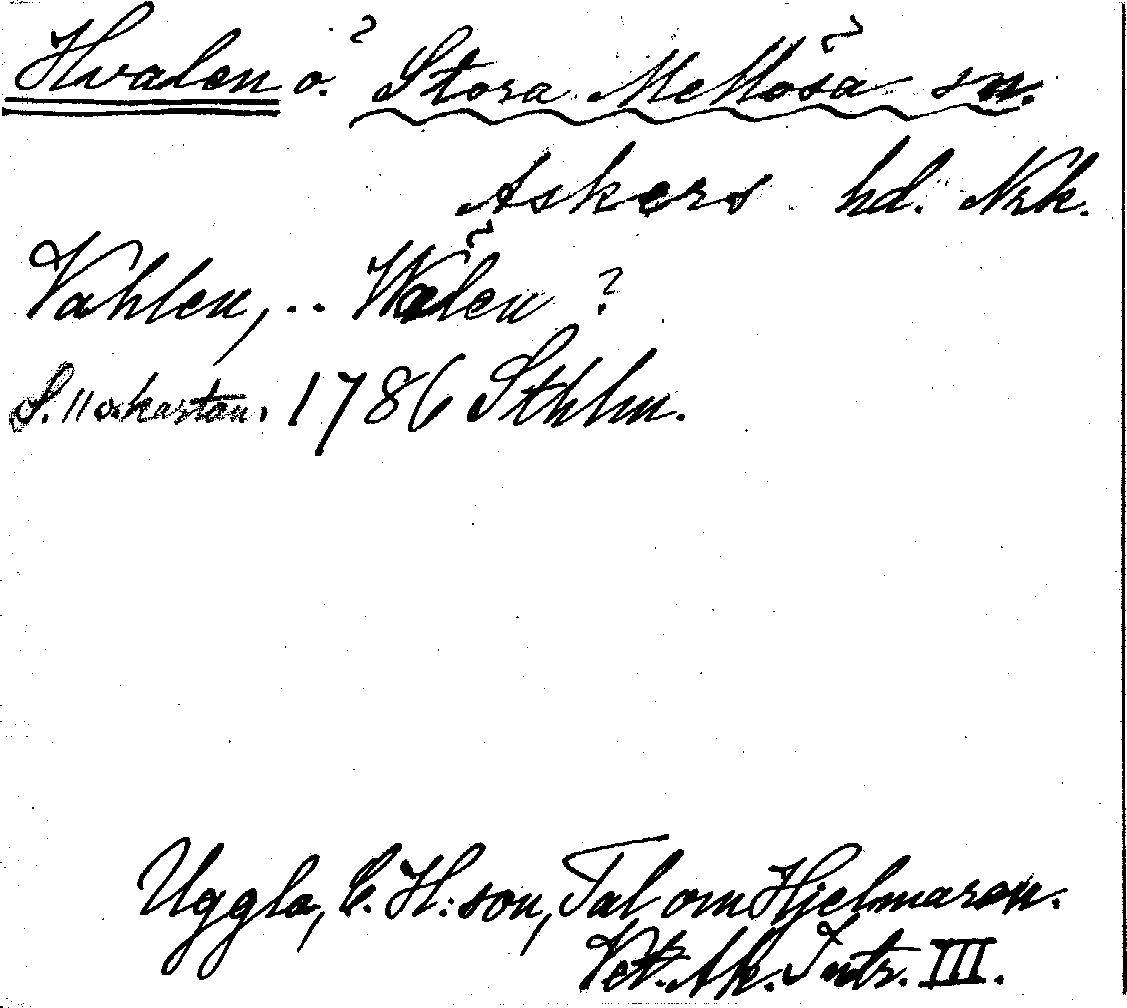 Hvalen ö? Stora Mellösa sn.
Askers hd. Nrk.
Vahlen, .. Walen ?
S. 11 o. kartan. 1786 Sthlm.
Uggla, C. H:son, Tal om Hjelmaren.
Vet. Ak. Intr. III.